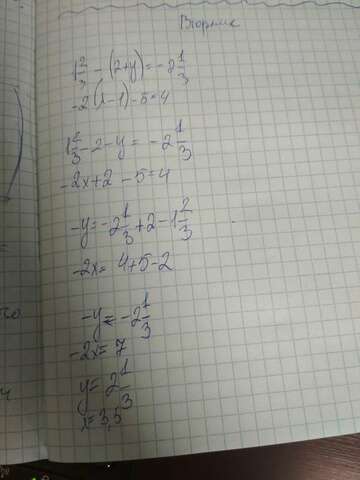 Вторник
1 2/3 - (2+y) = -2 1/3
-2(x-1)-5=4
1 2/3 - 2 - y = -2 1/3
-2x+2-5=4
-y = -2 1/3 + 2 - 1 2/3
-2x= 4+5-2
-y = -2 1/3
-2x= 7
y= 2 1/3
x= 3,5